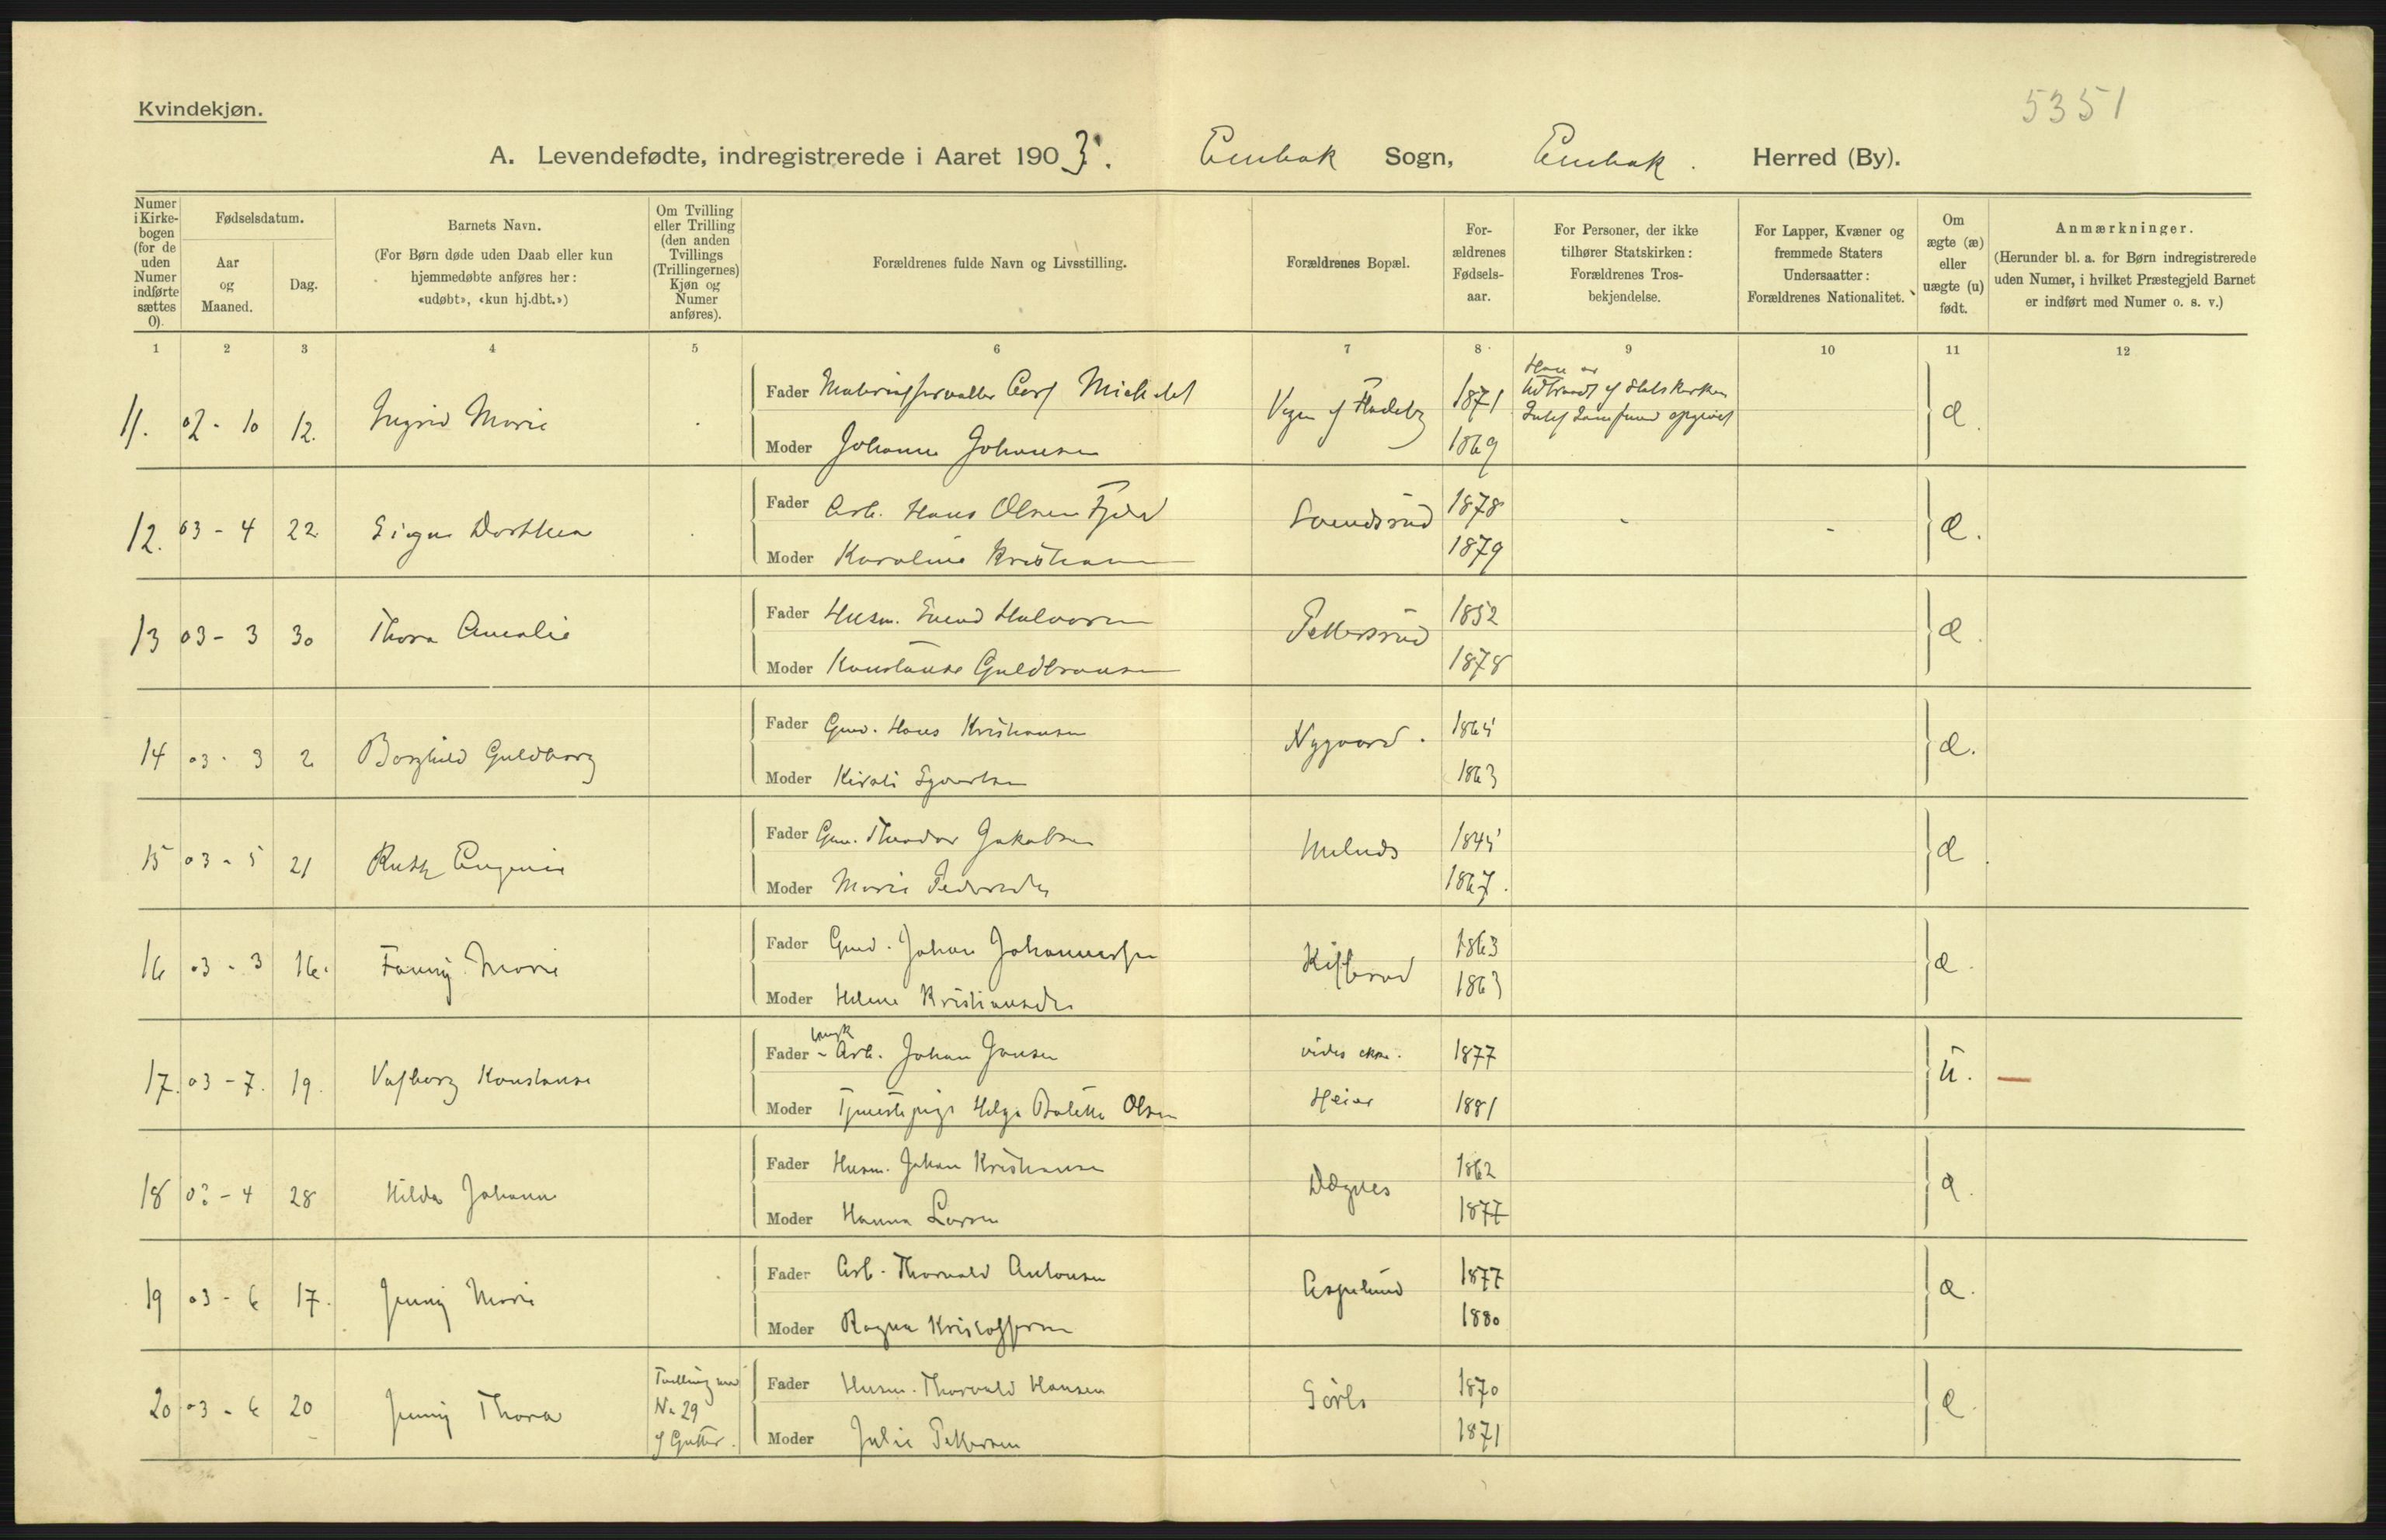 Kvindekjøn.
5351
A. Levendefødte, indregistrerede i Aaret 1903. Enebak Sogn, Enebak. Herred (By).
Numer i Kirkebogen (for de uden Numer indførte sættes 0).
Fødselsdatum.
Aar og Maaned.
Dag.
Barnets Navn.
(For Børn døde uden Daab eller kun hjemmedøbte anføres her: «udøbt», «kun hj.dbt.»)
Om Tvilling eller Trilling (den anden Tvillings (Trillingernes) Kjøn og Numer anføres).
Forældrenes fulde Navn og Livsstilling.
Forældrenes Bopæl.
For-ældrenes Fødsels-aar.
For Personer, der ikke tilhører Statskirken: Forældrenes Tros-bekjendelse.
For Lapper, Kvæner og fremmede Staters Undersaatter: Forældrenes Nationalitet.
Om ægte (æ) eller uægte (u) født.
Anmærkninger.
(Herunder bl. a. for Børn indregistrerede uden Numer, i hvilket Præstegjeld Barnet er indført med Numer o. s. v.)
1 2 3 4 5 6 7 8 9 10 11 12
11. 02 - 10 12. Ingrid Marie
Fader Materialforvalter Carl Michelet 1871
Moder Johanne Johansen 1869
æ.
12. 03 - 4 22 Signe Dorthea
Fader Arb. Hans Olsen Fjeld 1878
Moder Karoline Kristiansen 1879
æ.
13 03 - 3 30 Thora Amalie
Fader Husm. Svend Halvorsen Pettersrud 1852
Moder Konstanse Guldbransen 1878
æ.
14 03 - 3 2 Borghild Guldborg
Fader Gmd. Hans Kristiansen Nygaard. 1865
Moder Kirsti Syversen 1863
æ.
15 03 - 5 21 Ruth Eugenie
Fader Gm. Theodor Jakobsen 1845
Moder Marie Pedersdtr 1867.
æ.
16 03 - 3 16. Fanny Marie
Fader Gmd. Johan Johannessen 1863
Moder Helene Kristiansdtr 1863
æ.
17. 03 - 7. 19. Valborg Konstanse
Fader Arb. Johan Jansen vides ikke. 1877
Moder Tjenestepige Helga Bolette Olsen Heier 1881
u. —
18 03 - 4 28 Hilda Johanne
Fader Husm. Johan Kristiansen Dægnes 1862
Moder Hanna Larsen 1877
æ.
19 03 - 6 17. Jenny Marie
Fader Arb. Thorvald Antonsen Aspelund 1877
Moder Ragna Kristoffersen 1880
æ.
20 03 - 6 20 Jenny Thora
Tvilling med
No 29
af Gutter.
Fader Husm. Thorvald Hansen 1870
Moder Julie Pettersen 1871
æ.